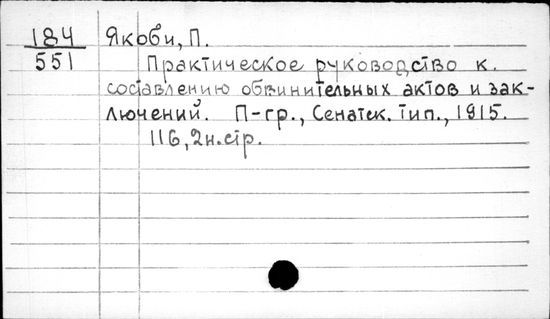 184
551
Якоби, П.
Практическое руководство к.
составлению обвинительных актов и зак-
лючений. П-гр., Сенатск. тип., 1915.
116, 2н.стр.